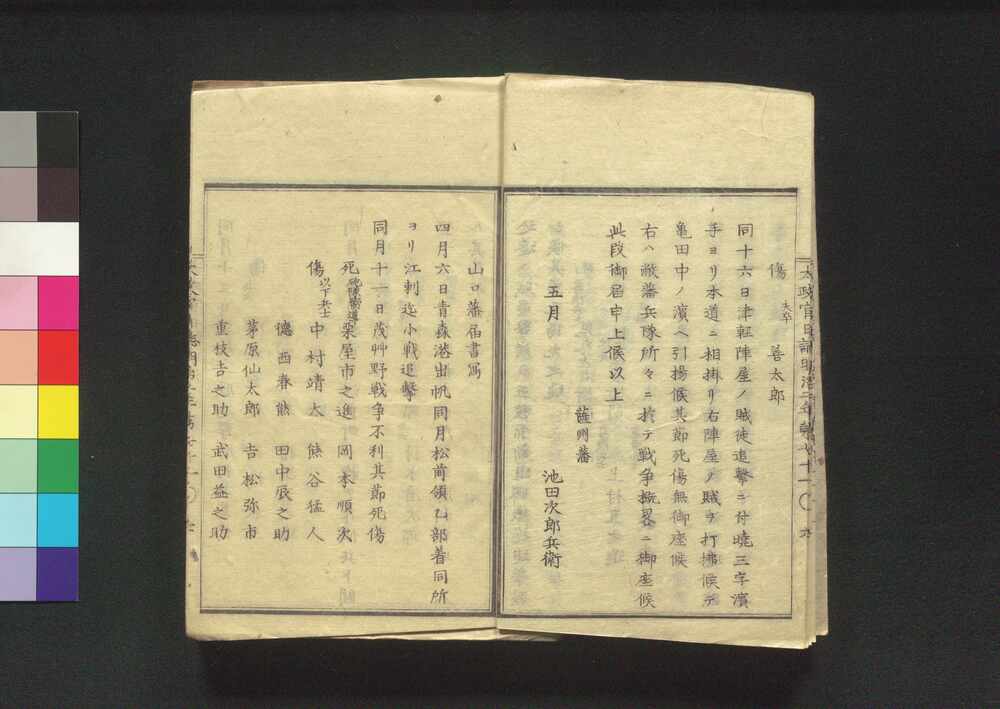 傷 夫卒 善太郎
同十六日津軽陣屋ノ賊徒追撃ニ付暁三字濱
手ヨリ本道ニ相掛リ右陣屋ノ賊ヲ打拂候テ
亀田中ノ濱ヘ引揚候其節死傷無御座候
右ハ敝藩兵隊所々ニ於テ戦争概畧ニ御座候
此段御届申上候以上
薩州藩
五月 池田次郎兵衛
山口藩届書写
四月六日青森港出帆同月松前領乙部着同所
ヨリ江刺迄小戦追撃
同月十一日茂艸野戦争不利其節死傷
死 栗屋市之進 岡本順次
傷 以下老士 中村靖太 熊谷猛人
德西春熊 田中辰之助
茅原仙太郎 吉松弥市
重枝吉之助 武田益之助
太政官日誌明治二年